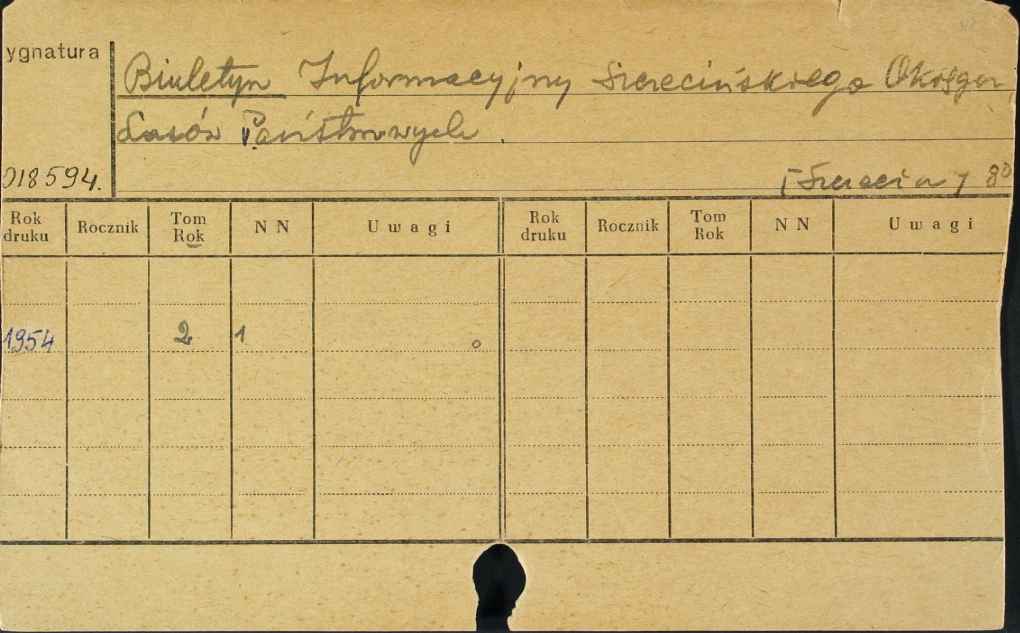 ygnatura
Biuletyn Informacyjny Szczecińskiego Okręgu
Lasów Państwowych.
018594.
[Szczecin] 8°
Rok druku Rocznik Tom Rok N N Uwagi Rok druku Rocznik Tom Rok N N Uwagi
1954 2 1